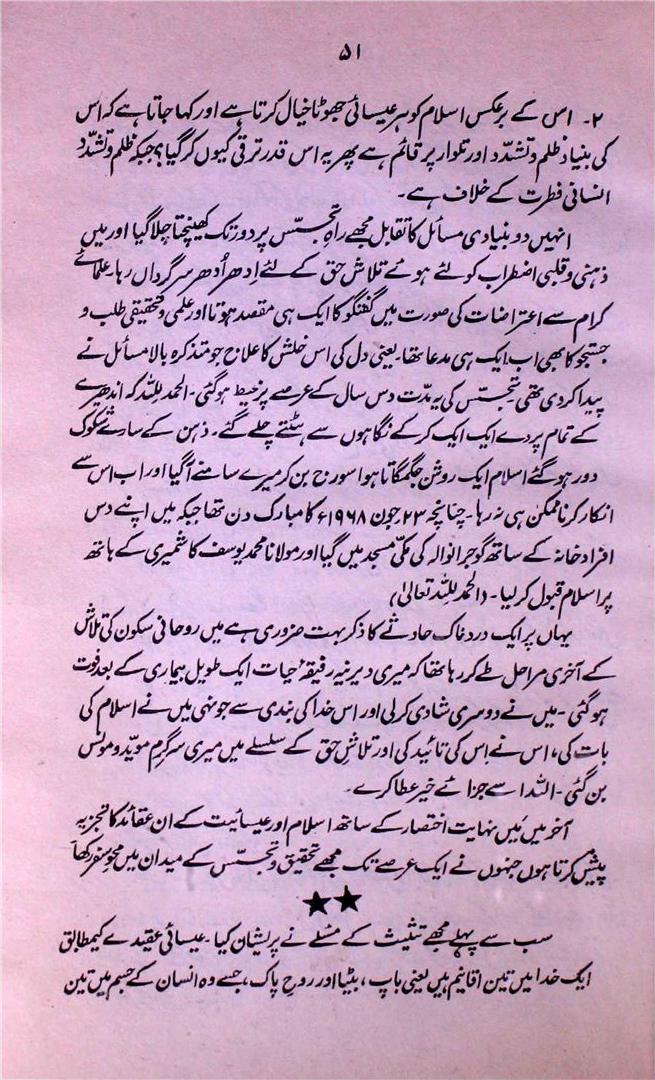 ۵۱
۲۔ اس کے برعکس اسلام کو ہر عیسائی جھوٹا خیال کرتا ہے اور کہا جاتا ہے کہ اس
کی بنیاد ظلم و تشدّد اور تلوار پر قائم ہے پھر یہ اس قدر ترقی کیوں کر گیا؟ جبکہ ظلم و تشدّد
انسانی فطرت کے خلاف ہے۔
انہیں دو بنیادی مسائل کا تقابل مجھے راہِ تجسّس پر دور تک کھینچتا چلا گیا اور میں
ذہنی و قلبی اضطراب کو لئے ہوئے تلاش حق کے لئے اِدھر اُدھر سرگرداں رہا۔ علمائے
کرام سے اعتراضات کی صورت میں گفتگو کا ایک ہی مقصد ہوتا اور علمی و تحقیقی طلب و
جستجو کا بھی اب ایک ہی مدعا تھا۔ یعنی دل کی اس خلش کا علاج جو متذکرہ بالا مسائل نے
پیدا کر دی تھی۔ تجسّس کی یہ مدّت دس سال کے عرصے پر محیط ہو گئی۔ الحمد للہ کہ اندھیرے
کے تمام پردے ایک ایک کر کے نگاہوں سے ہٹتے چلے گئے۔ ذہن کے سارے شکوک
دور ہو گئے اسلام ایک روشن جگمگاتا ہوا سورج بن کر میرے سامنے آ گیا اور اب اس سے
انکار کرنا ممکن ہی نہ رہا۔ چنانچہ ۲۳ جون ۱۹۶۸ء کا مبارک دن تھا جبکہ میں اپنے دس
افراد خانہ کے ساتھ گوجرانوالہ کی مکّی مسجد میں گیا اور مولانا محمد یوسف کاشمیری کے ہاتھ
پر اسلام قبول کر لیا۔ (الحمد للہ تعالیٰ)
یہاں پر ایک دردناک حادثے کا ذکر بہت ضروری ہے میں روحانی سکون کی تلاش
کے آخری مراحل طے کر رہا تھا کہ میری دیرینہ رفیقۂ حیات ایک طویل بیماری کے بعد فوت
ہو گئی۔ میں نے دوسری شادی کر لی اور اس خدا کی بندی سے جونہی میں نے اسلام کی
بات کی، اس نے اس کی تائید کی اور تلاشِ حق کے سلسلے میں میری سرگرم مویّد و مونس
بن گئی۔ اللہ اسے جزائے خیر عطا کرے۔
آخر میں مَیں نہایت اختصار کے ساتھ اسلام اور عیسائیت کے ان عقائد کا تجزیہ
پیش کرتا ہوں جنہوں نے ایک عرصے تک مجھے تحقیق و تجسّس کے میدان میں محوِ سفر رکھا
★★
سب سے پہلے مجھے تثیث کے مسئلے نے پریشان کیا۔ عیسائی عقیدے کیمطابق
ایک خدا میں تین اقانیم ہیں یعنی باپ، بیٹا اور روح پاک، جسے وہ انسان کے جسم میں تین